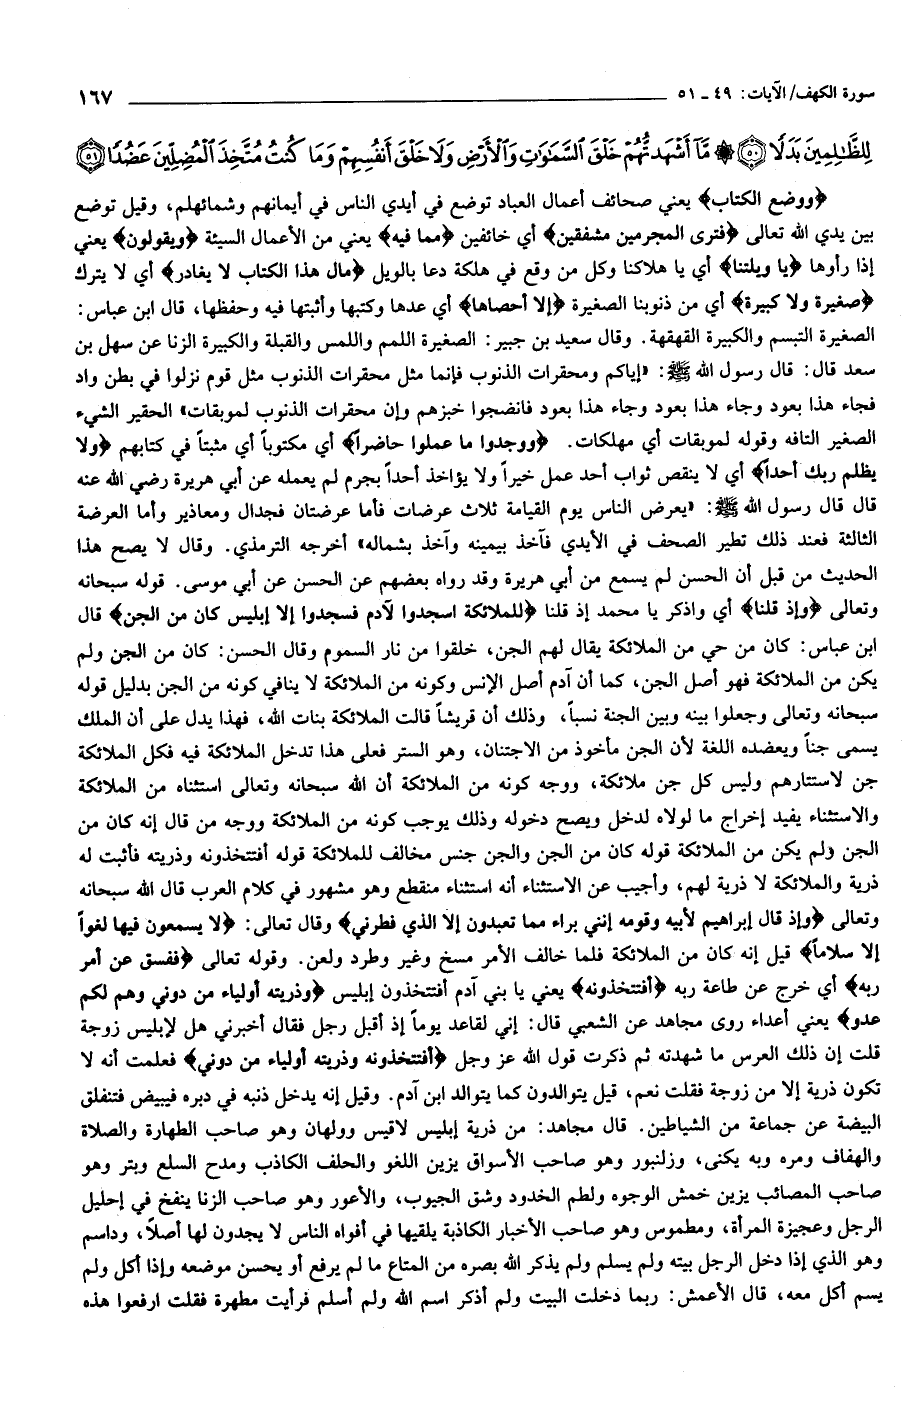 سورة الكهف/ الآيات: ٤٩ ـ ٥١ ١٦٧
لِلظَّٰلِمِينَ بَدَلًا ﴿٥٠﴾ ۞ مَّآ أَشْهَدتُّهُمْ خَلْقَ ٱلسَّمَٰوَٰتِ وَٱلْأَرْضِ وَلَا خَلْقَ أَنفُسِهِمْ وَمَا كُنتُ مُتَّخِذَ ٱلْمُضِلِّينَ عَضُدًا ﴿٥١﴾
﴿ووضع الكتاب﴾ يعني صحائف أعمال العباد توضع في أيدي الناس في أيمانهم وشمائلهم، وقيل توضع
بين يدي الله تعالى ﴿فترى المجرمين مشفقين﴾ أي خائفين ﴿مما فيه﴾ يعني من الأعمال السيئة ﴿ويقولون﴾ يعني
إذا رأوها ﴿يا ويلتنا﴾ أي يا هلاكنا وكل من وقع في هلكة دعا بالويل ﴿مال هذا الكتاب لا يغادر﴾ أي لا يترك
﴿صغيرة ولا كبيرة﴾ أي من ذنوبنا الصغيرة ﴿إلا أحصاها﴾ أي عدها وكتبها وأثبتها فيه وحفظها، قال ابن عباس:
الصغيرة التبسم والكبيرة القهقهة. وقال سعيد بن جبير: الصغيرة اللمم واللمس والقبلة والكبيرة الزنا عن سهل بن
سعد قال: قال رسول الله ﷺ: «إياكم ومحقرات الذنوب فإنما مثل محقرات الذنوب مثل قوم نزلوا في بطن واد
فجاء هذا بعود وجاء هذا بعود وجاء هذا بعود فانضجوا خبزهم وإن محقرات الذنوب لموبقات» الحقير الشيء
الصغير التافه وقوله لموبقات أي مهلكات. ﴿ووجدوا ما عملوا حاضراً﴾ أي مكتوباً أي مثبتاً في كتابهم ﴿ولا
يظلم ربك أحداً﴾ أي لا ينقص ثواب أحد عمل خيراً ولا يؤاخذ أحداً بجرم لم يعمله عن أبي هريرة رضي الله عنه
قال قال رسول الله ﷺ: «يعرض الناس يوم القيامة ثلاث عرضات فأما عرضتان فجدال ومعاذير وأما العرضة
الثالثة فعند ذلك تطير الصحف في الأيدي فآخذ بيمينه وآخذ بشماله» أخرجه الترمذي. وقال لا يصح هذا
الحديث من قبل أن الحسن لم يسمع من أبي هريرة وقد رواه بعضهم عن الحسن عن أبي موسى. قوله سبحانه
وتعالى ﴿وإذ قلنا﴾ أي واذكر يا محمد إذ قلنا ﴿للملائكة اسجدوا لآدم فسجدوا إلا إبليس كان من الجن﴾ قال
ابن عباس: كان من حي من الملائكة يقال لهم الجن، خلقوا من نار السموم وقال الحسن: كان من الجن ولم
يكن من الملائكة فهو أصل الجن، كما أن آدم أصل الإنس وكونه من الملائكة لا ينافي كونه من الجن بدليل قوله
سبحانه وتعالى وجعلوا بينه وبين الجنة نسباً، وذلك أن قريشاً قالت الملائكة بنات الله، فهذا يدل على أن الملك
يسمى جناً ويعضده اللغة لأن الجن مأخوذ من الاجتنان، وهو الستر فعلى هذا تدخل الملائكة فيه فكل الملائكة
جن لاستتارهم وليس كل جن ملائكة، ووجه كونه من الملائكة أن الله سبحانه وتعالى استثناه من الملائكة
والاستثناء يفيد إخراج ما لولاه لدخل ويصح دخوله وذلك يوجب كونه من الملائكة ووجه من قال إنه كان من
الجن ولم يكن من الملائكة قوله كان من الجن والجن جنس مخالف للملائكة قوله أفتتخذونه وذريته فأثبت له
ذرية والملائكة لا ذرية لهم، وأجيب عن الاستثناء أنه استثناء منقطع وهو مشهور في كلام العرب قال الله سبحانه
وتعالى ﴿وإذ قال إبراهيم لأبيه وقومه إنني براء مما تعبدون إلا الذي فطرني﴾ وقال تعالى: ﴿لا يسمعون فيها لغواً
إلا سلاماً﴾ قيل إنه كان من الملائكة فلما خالف الأمر مسخ وغير وطرد ولعن. وقوله تعالى ﴿ففسق عن أمر
ربه﴾ أي خرج عن طاعة ربه ﴿أفتتخذونه﴾ يعني يا بني آدم أفتتخذون إبليس ﴿وذريته أولياء من دوني وهم لكم
عدو﴾ يعني أعداء روى مجاهد عن الشعبي قال: إني لقاعد يوماً إذ أقبل رجل فقال أخبرني هل لإبليس زوجة
قلت إن ذلك العرس ما شهدته ثم ذكرت قول الله عز وجل ﴿أفتتخذونه وذريته أولياء من دوني﴾ فعلمت أنه لا
تكون ذرية إلا من زوجة فقلت نعم، قيل يتوالدون كما يتوالد ابن آدم. وقيل إنه يدخل ذنبه في دبره فيبيض فتنفلق
البيضة عن جماعة من الشياطين. قال مجاهد: من ذرية إبليس لاقيس وولهان وهو صاحب الطهارة والصلاة
والهفاف ومره وبه يكنى، وزلنبور وهو صاحب الأسواق يزين اللغو والحلف الكاذب ومدح السلع وبتر وهو
صاحب المصائب يزين خمش الوجوه ولطم الخدود وشق الجيوب، والأعور وهو صاحب الزنا ينفخ في إحليل
الرجل وعجيزة المرأة، ومطموس وهو صاحب الأخبار الكاذبة يلقيها في أفواه الناس لا يجدون لها أصلاً، وداسم
وهو الذي إذا دخل الرجل بيته ولم يسلم ولم يذكر الله بصره من المتاع ما لم يرفع أو يحسن موضعه وإذا أكل ولم
يسم أكل معه، قال الأعمش: ربما دخلت البيت ولم أذكر اسم الله ولم أسلم فرأيت مطهرة فقلت ارفعوا هذه